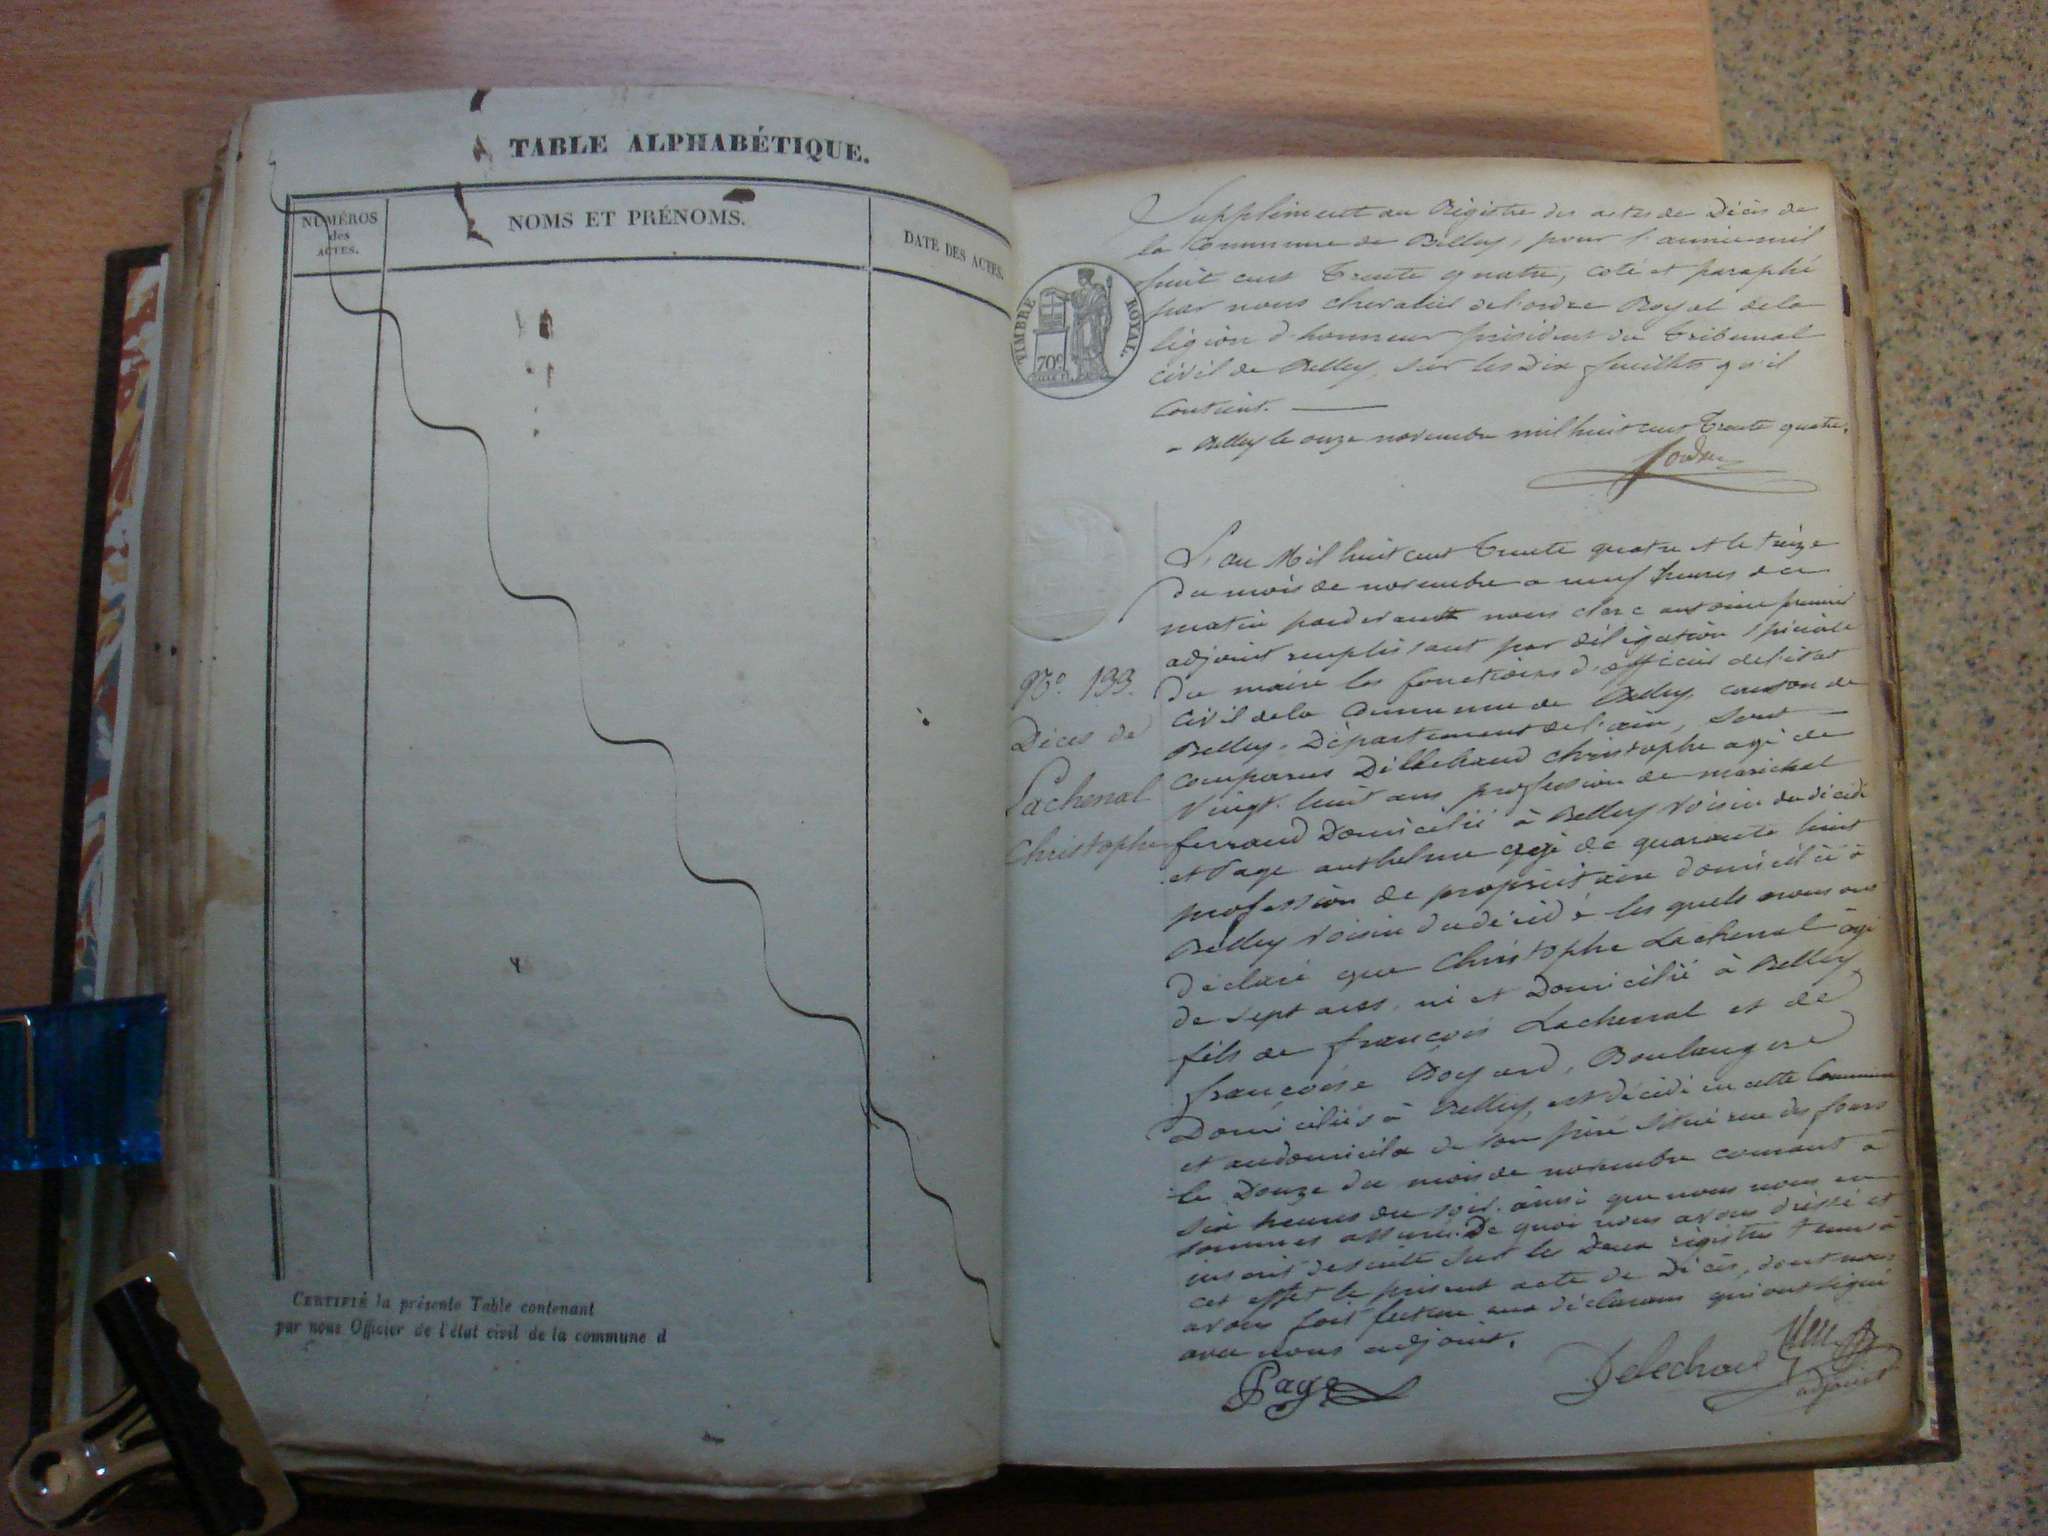 TABLE ALPHABÉTIQUE.
NUMÉROS
des
ACTES.
NOMS ET PRÉNOMS.
DATE DES ACTES.
CERTIFIÉ la présente Table contenant
par nous Officier de l'état civil de la commune d
TIMBRE ROYAL.
70c
Supplément au Régistre des actes de Décès de
la Commune de Belley, pour l'année mil
huit cent trente quatre, coté et paraphé
par nous chevalier de l'ordre Royal de la
légion d'honneur président du Tribunal
civil de Belley, sur les Dix feuillets qu'il
contient.
a Belley le onze novembre mil huit cent trente quatre.
No. 133.
Décès de
Lachenal
Christophe
L'an Mil huit cent trente quatre et le treize
du mois de novembre a neuf heures du
matin pardevant nous clerc antoine premier
adjoint remplissant par délégation spéciale
du maire les fonctions d'officier de l'état
civil de la Commune de Belley, canton de
Belley, Département de l'ain, sont
comparus christophe agé de
vingt huit ans profession de maréchal
ferrand Domicilié à Belley voisin du décédé
et Page anthelme agé de quarante huit
profession de propriétaire domicilié à
Belley voisin du décédé les quels nous ont
déclaré que Christophe Lachenal agé
de sept ans, né et Domicilié à Belley
fils de françois Lachenal et de
françoise Boyard, Boulangers
Domiciliés à Belley, est décédé en cette Commune
et au domicile de son père situé rue des fours
le Douze du mois de novembre courant à
six heures du soir, ainsi que nous nous en
sommes assuré. De quoi nous avons dressé et
inscrit de suite sur les Deux régistres tenus à
cet effet le présent acte de Décès, dont nous
avons fait lecture aux déclarans qui ont signé
avec nous adjoint.
Page
Delechaud
adjoint